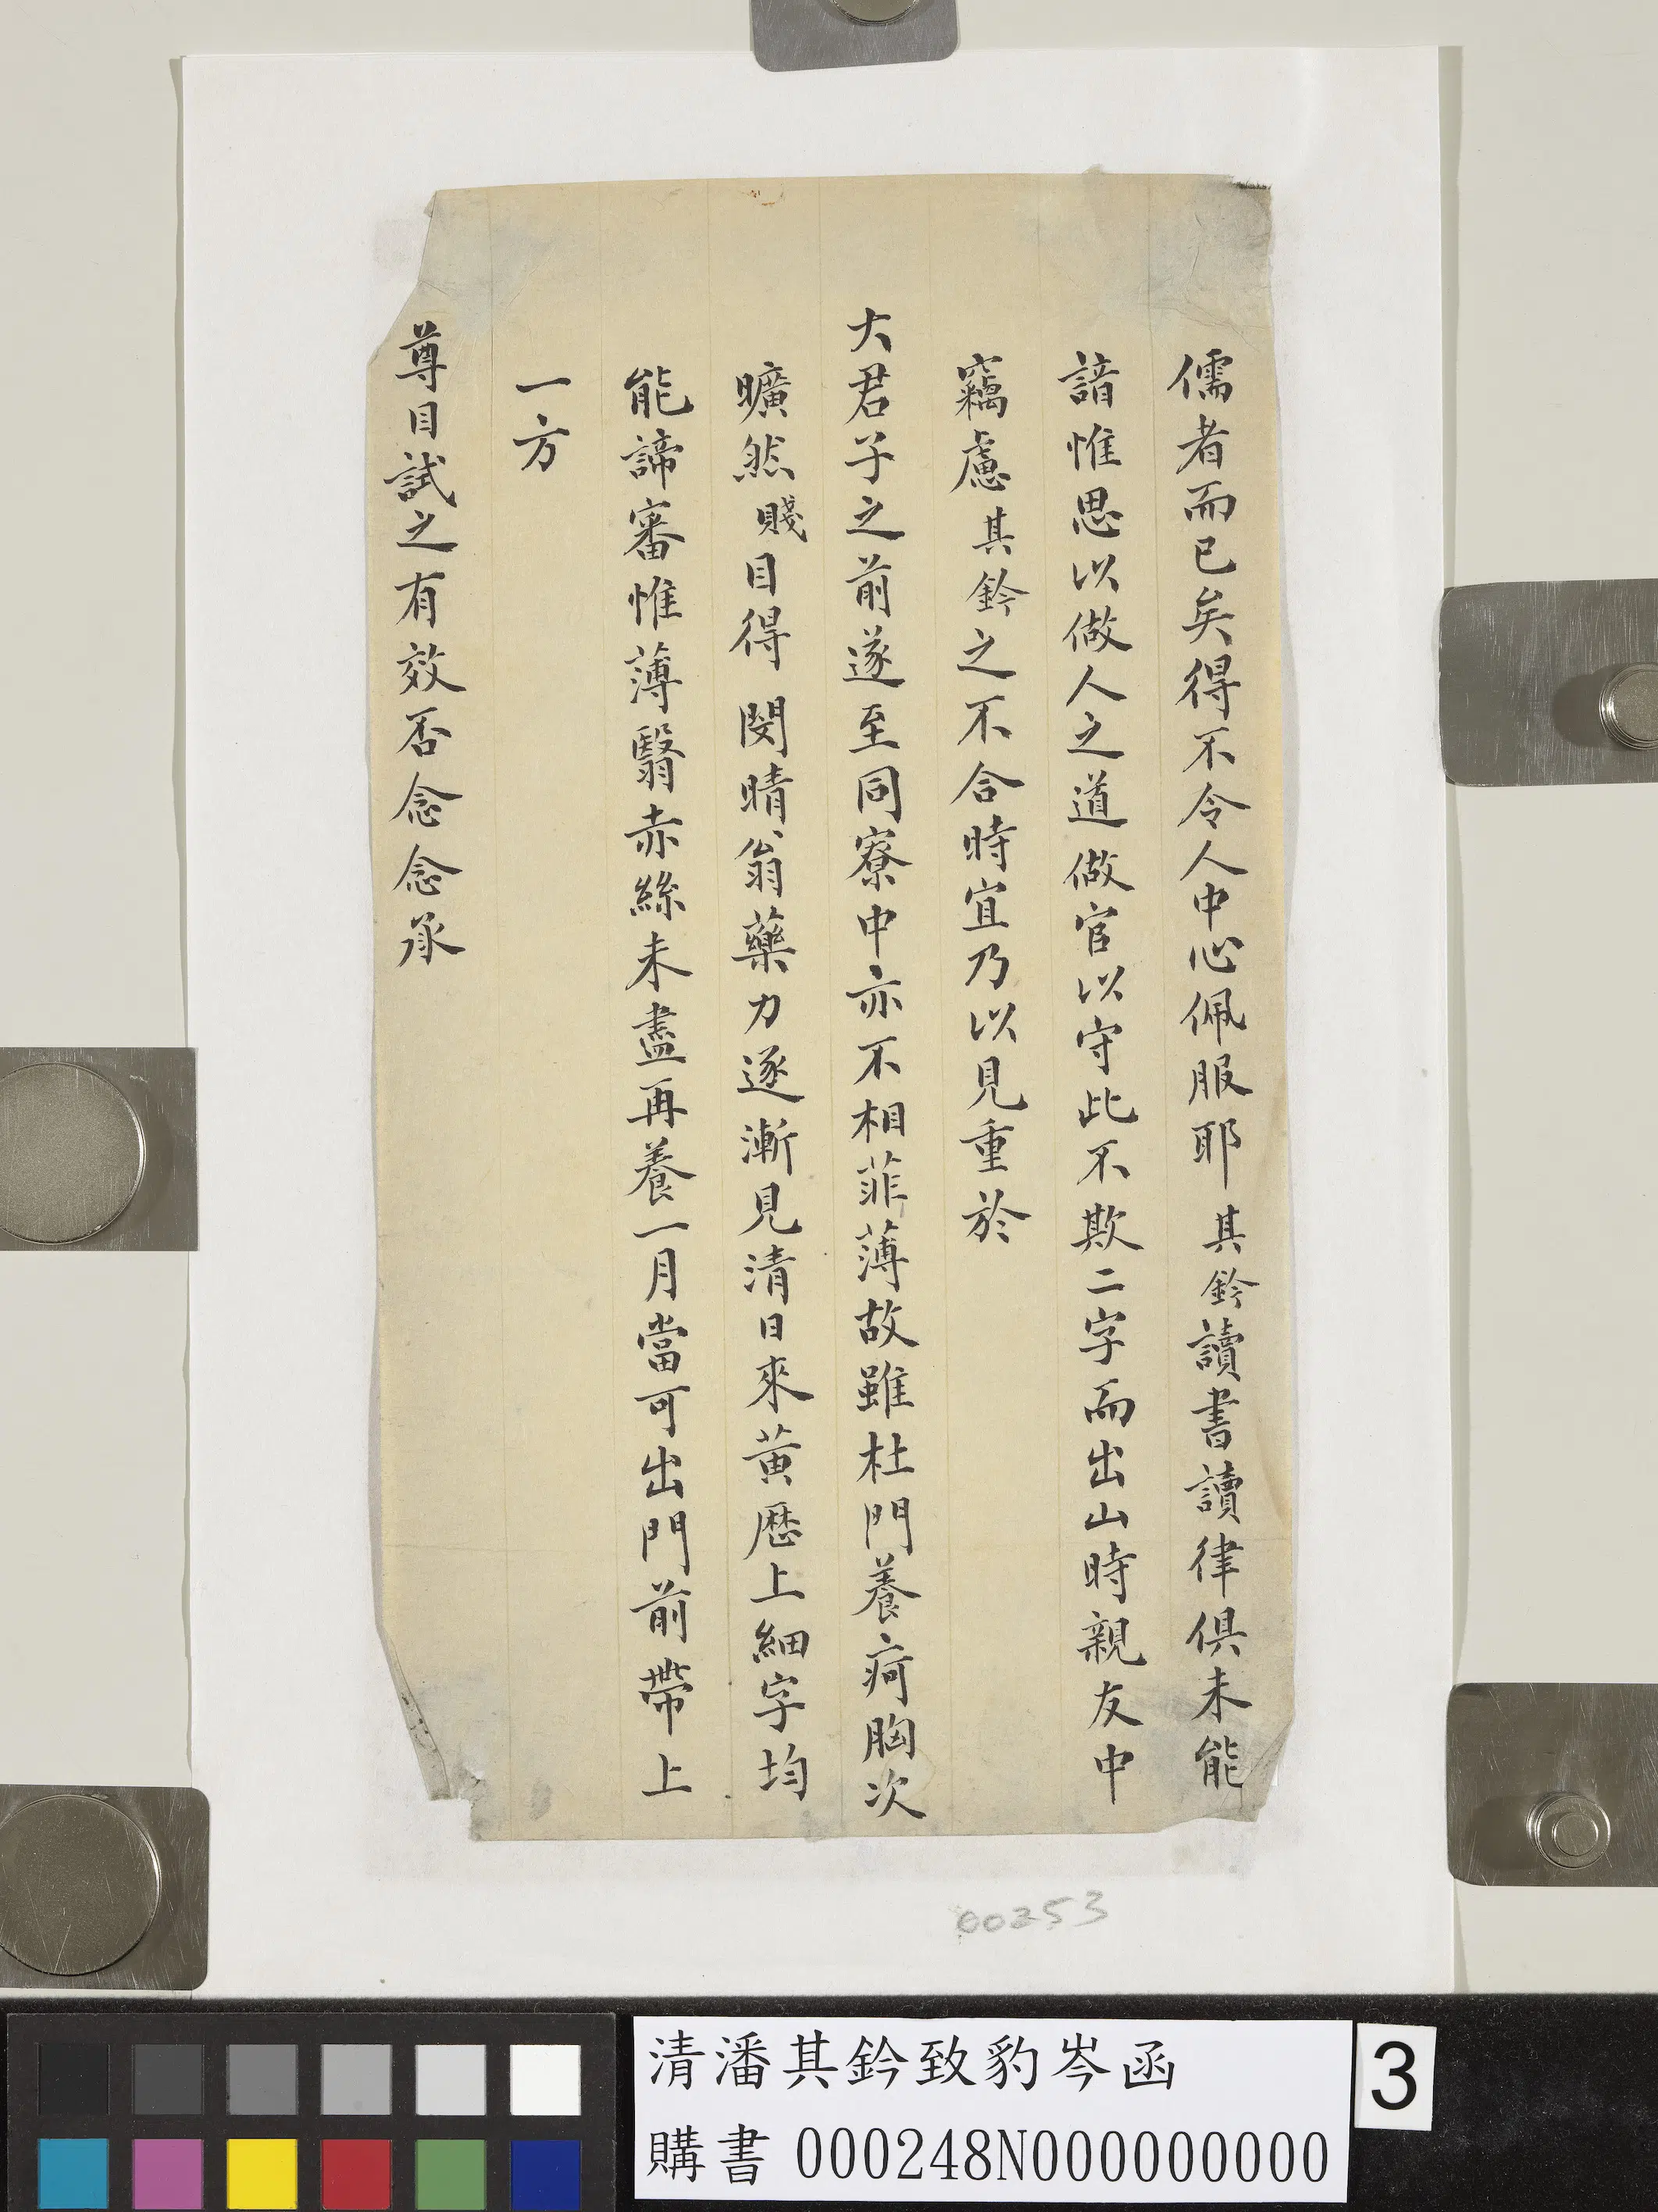 儒者而已矣得不令人中心佩服耶其鈐讀書讀律俱未能
諳惟思以做人之道做官以守此不欺二字而出山時親友中
竊慮其鈐之不合時宜乃以見重於
大君子之前遂至同寮中亦不相菲薄故雖杜門養疴胸次
曠然賤目得閔晴翁藥力逐漸見清日來黃歷上細字均
能諦審惟薄翳赤絲未盡再養一月當可出門前帶上
一方
尊目試之有效否念念承
00253
清潘其鈐致豹岑函
購書 000248N000000000
3